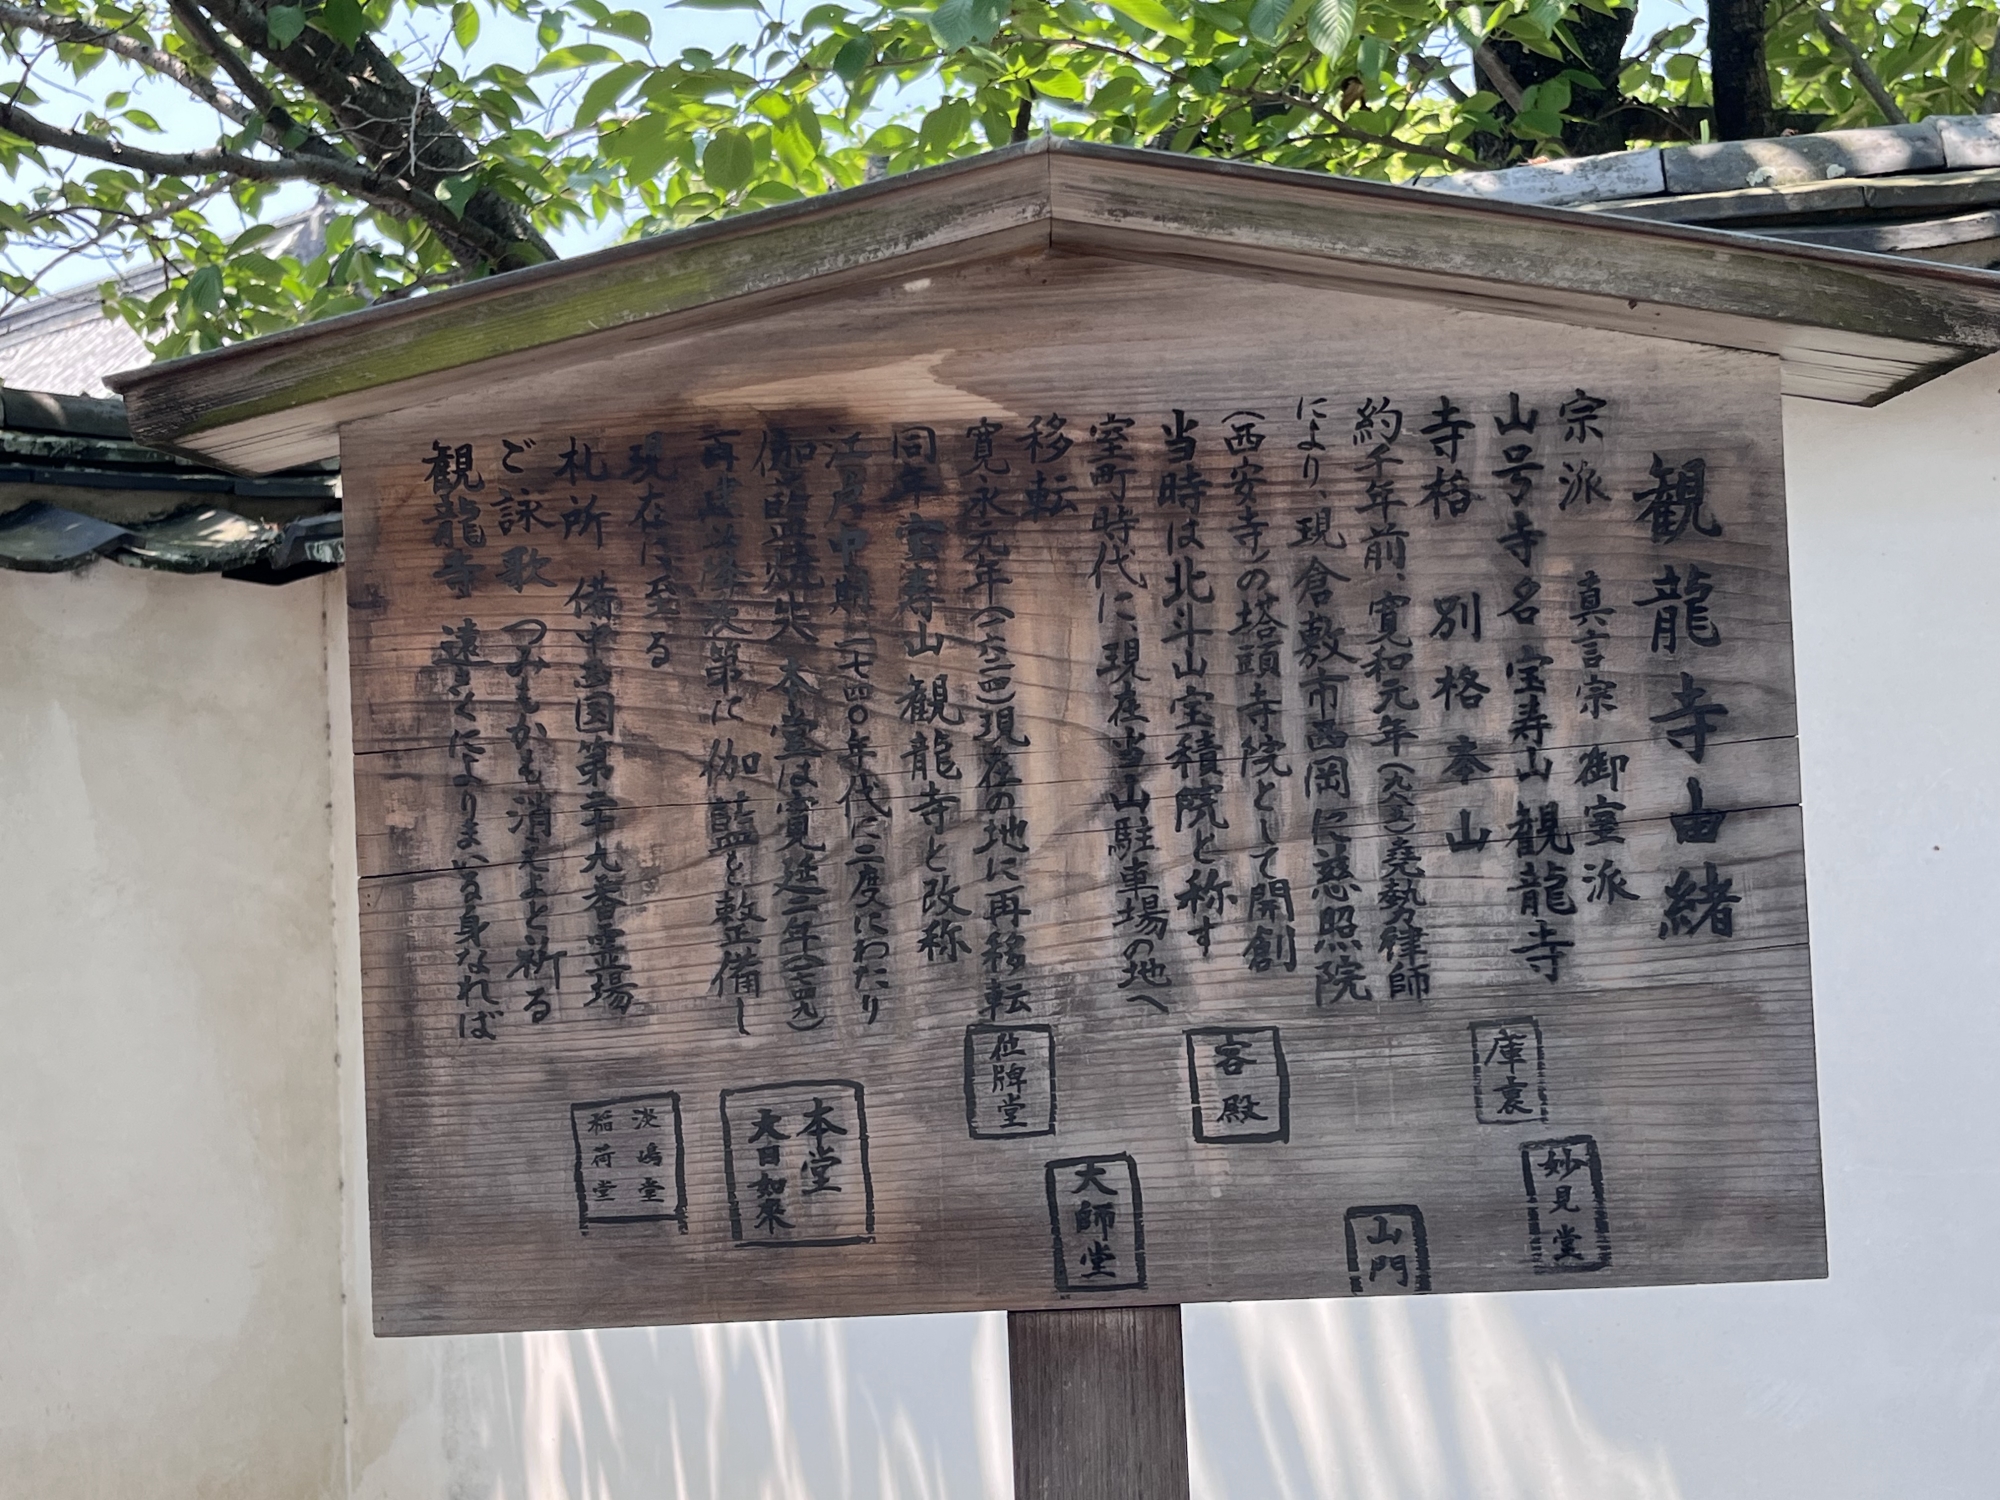 観龍寺由緒
宗派 真言宗 御室派
山号寺名 宝寿山 観龍寺
寺格 別格本山
約千年前、寛和元年(九八五)尭勢律師
により、現倉敷市西岡に慈照院
(西安寺)の塔頭寺院として開創
当時は北斗山宝積院と称す
室町時代に現在当山駐車場の地へ
移転
寛永元年(一六二四)現在の地に再移転
同年宝寿山 観龍寺と改称
江戸中期一七四〇年代に二度にわたり
伽藍焼失 本堂は寛延二年(一七四九)
再建 次第に伽藍を整備し
現在に至る
札所 備中国第二十九番霊場
ご詠歌 つみもかも消えよと祈る
観龍寺 遠くによりまいる身なれば
庫裏
妙見堂
客殿
山門
位牌堂
大師堂
本堂
大日如来
淡嶋堂
稲荷堂